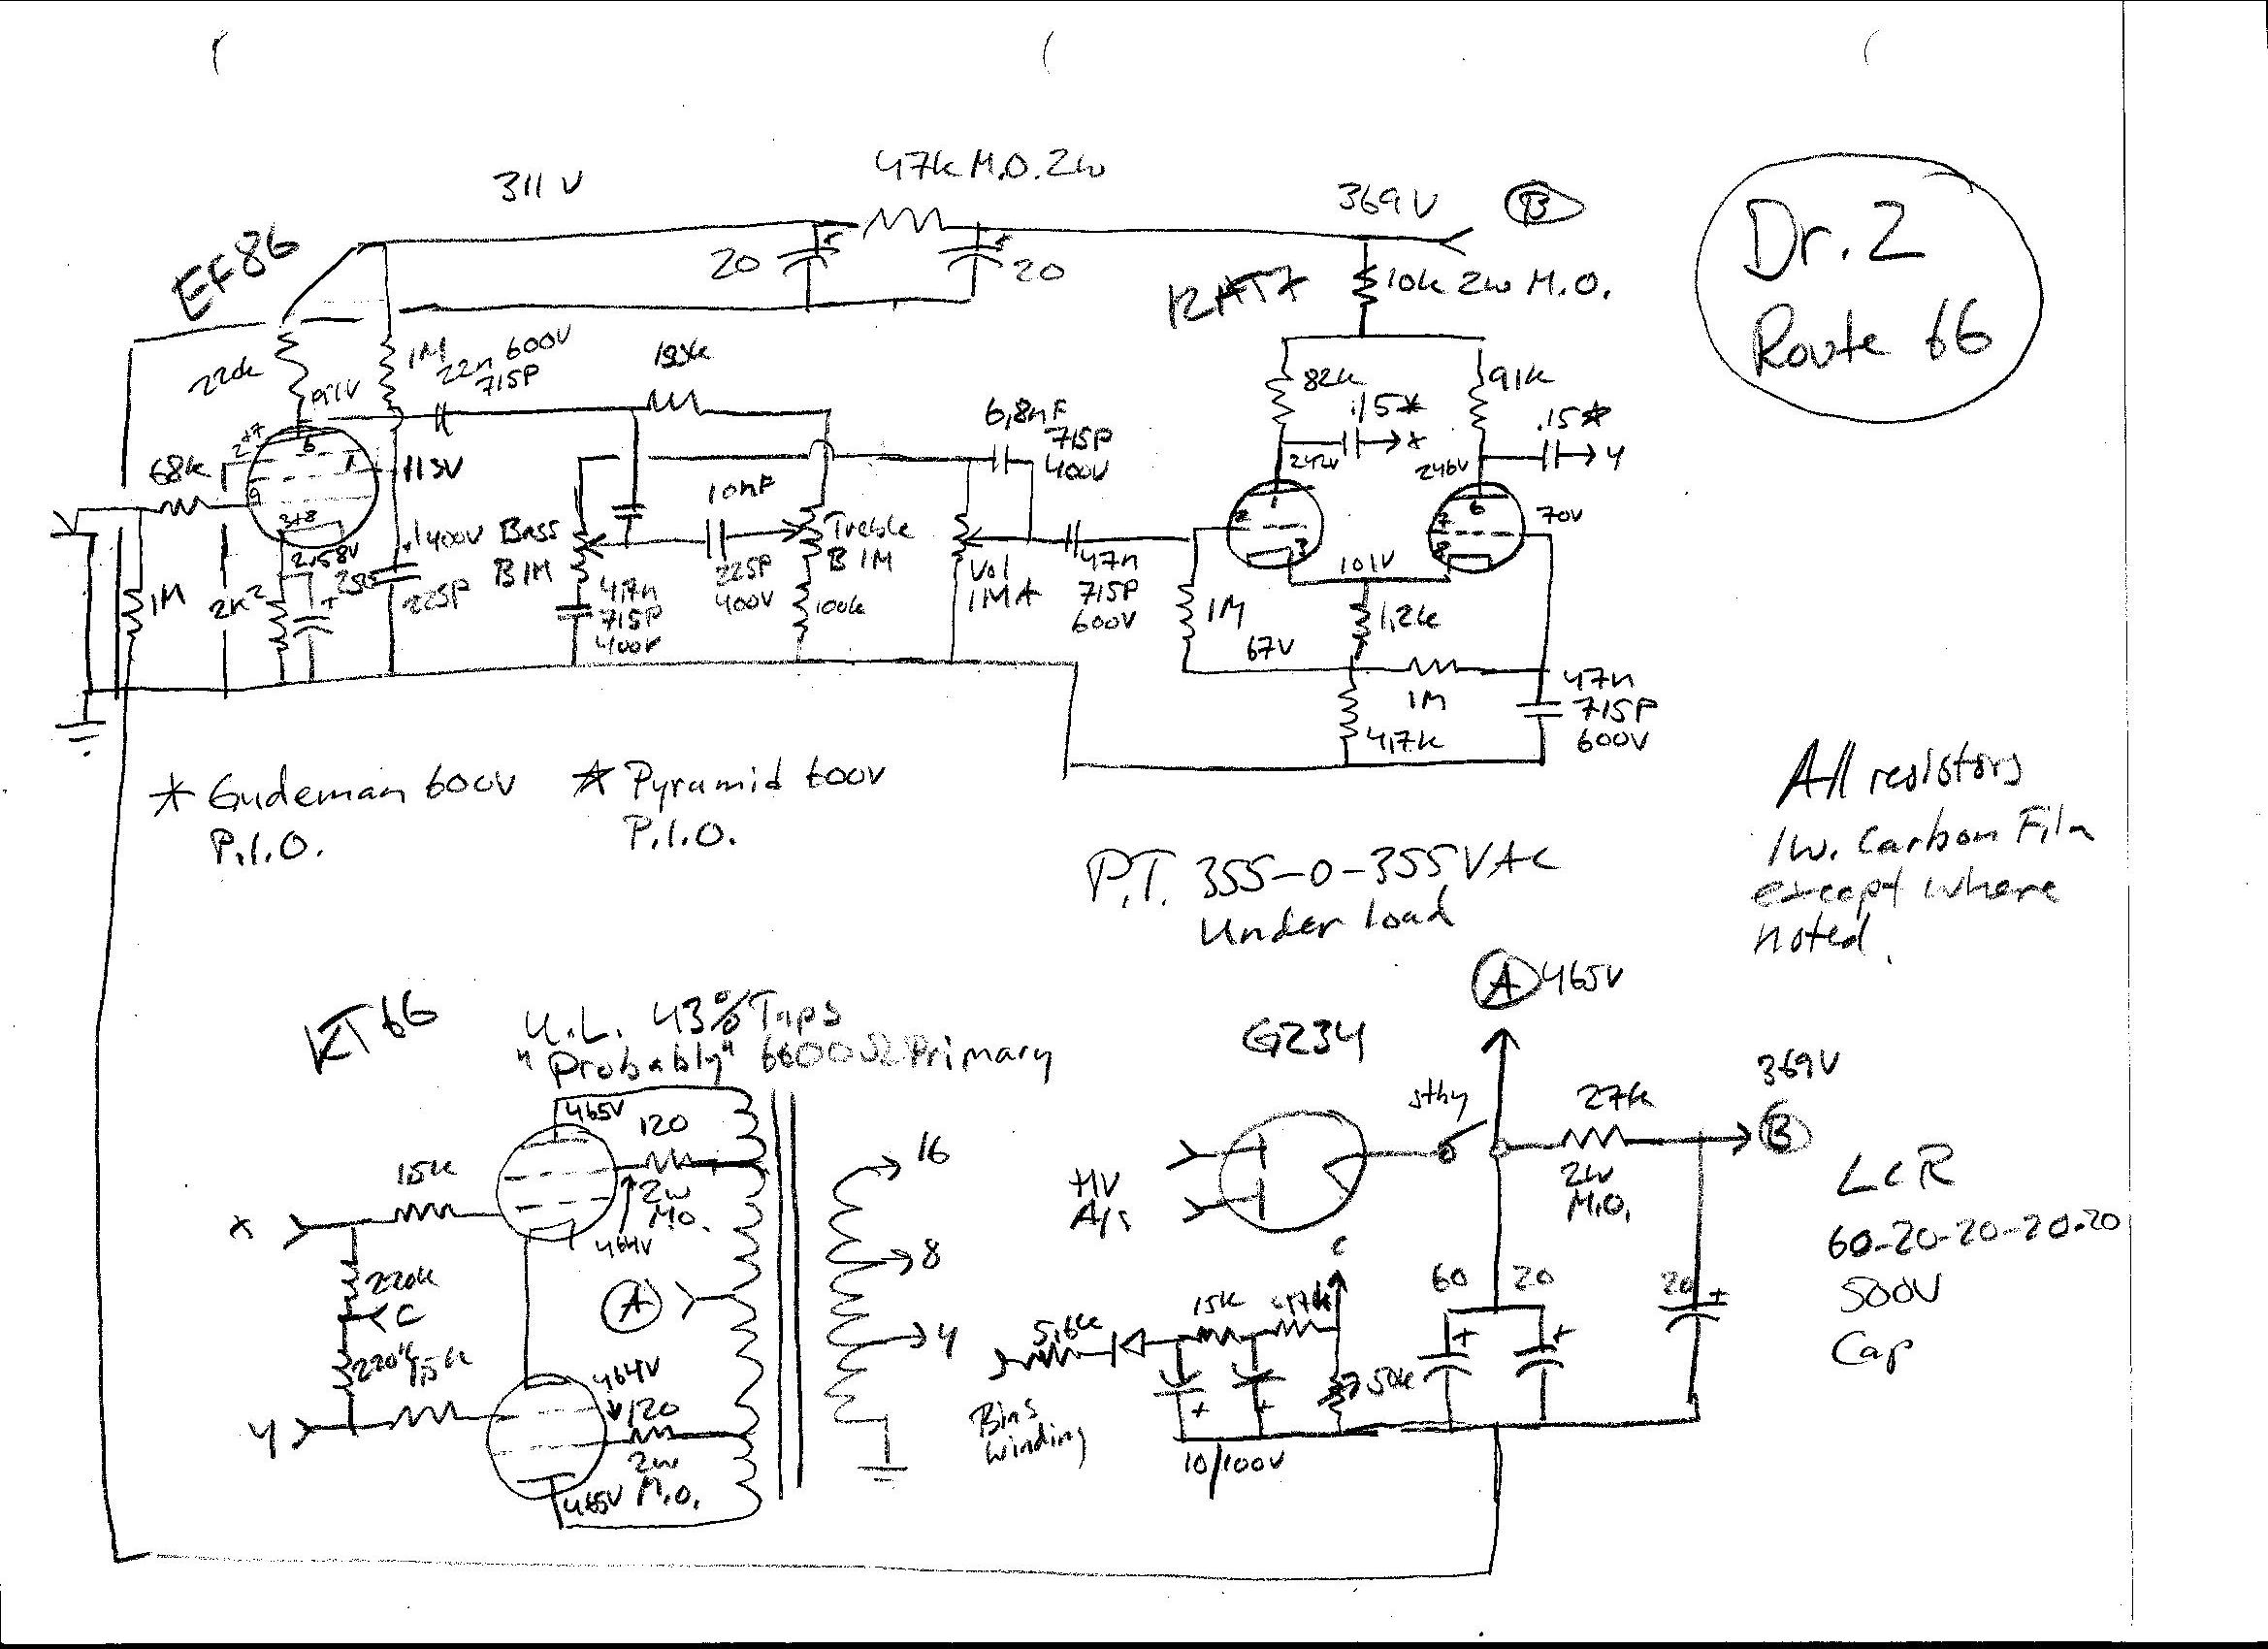 311 V
47k M.O. 2w
369V
B
Dr. Z
Route 66
EF86
20
20
12AT7
10k 2w M.O.
220k
1M
22n 600V
715P
91V
82k
.15*
x
91k
.15*
y
242V
246V
70V
2+7
6
1
9
3+8
113V
68k
2.58V
1M
2k2
.1 400V
225P
Bass
B 1M
47n
715P
400V
10nF
225P
400V
Treble
B 1M
100k
6,8nF
715P
400V
Vol
1MA
47n
715P
600V
2
1
3
7
6
8
101V
1M
67V
1,2k
1M
47k
47n
715P
600V
* Gudeman 600V
P.I.O.
* Pyramid 600V
P.I.O.
All resistors
1w. Carbon Film
except where
noted.
P.T. 355-0-355VAC
Under load
KT66
U.L. 43% Taps
"Probably" 6600Ω Primary
465V
120
2w
M.O.
464V
15k
x
220k
C
220k
15k
y
A
464V
120
2w
M.O.
465V
16
8
4
A 465V
GZ34
stby
27k
2w
M.O.
369V
B
HV
C
60
20
20
5,6k
15k
47k
Bias
Winding
10/100V
LCR
60-20-20-20-20
500V
Cap